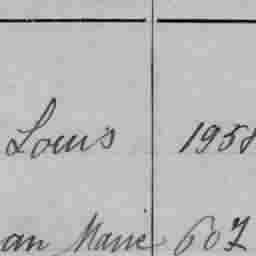 Louis 1958
an Marie 607